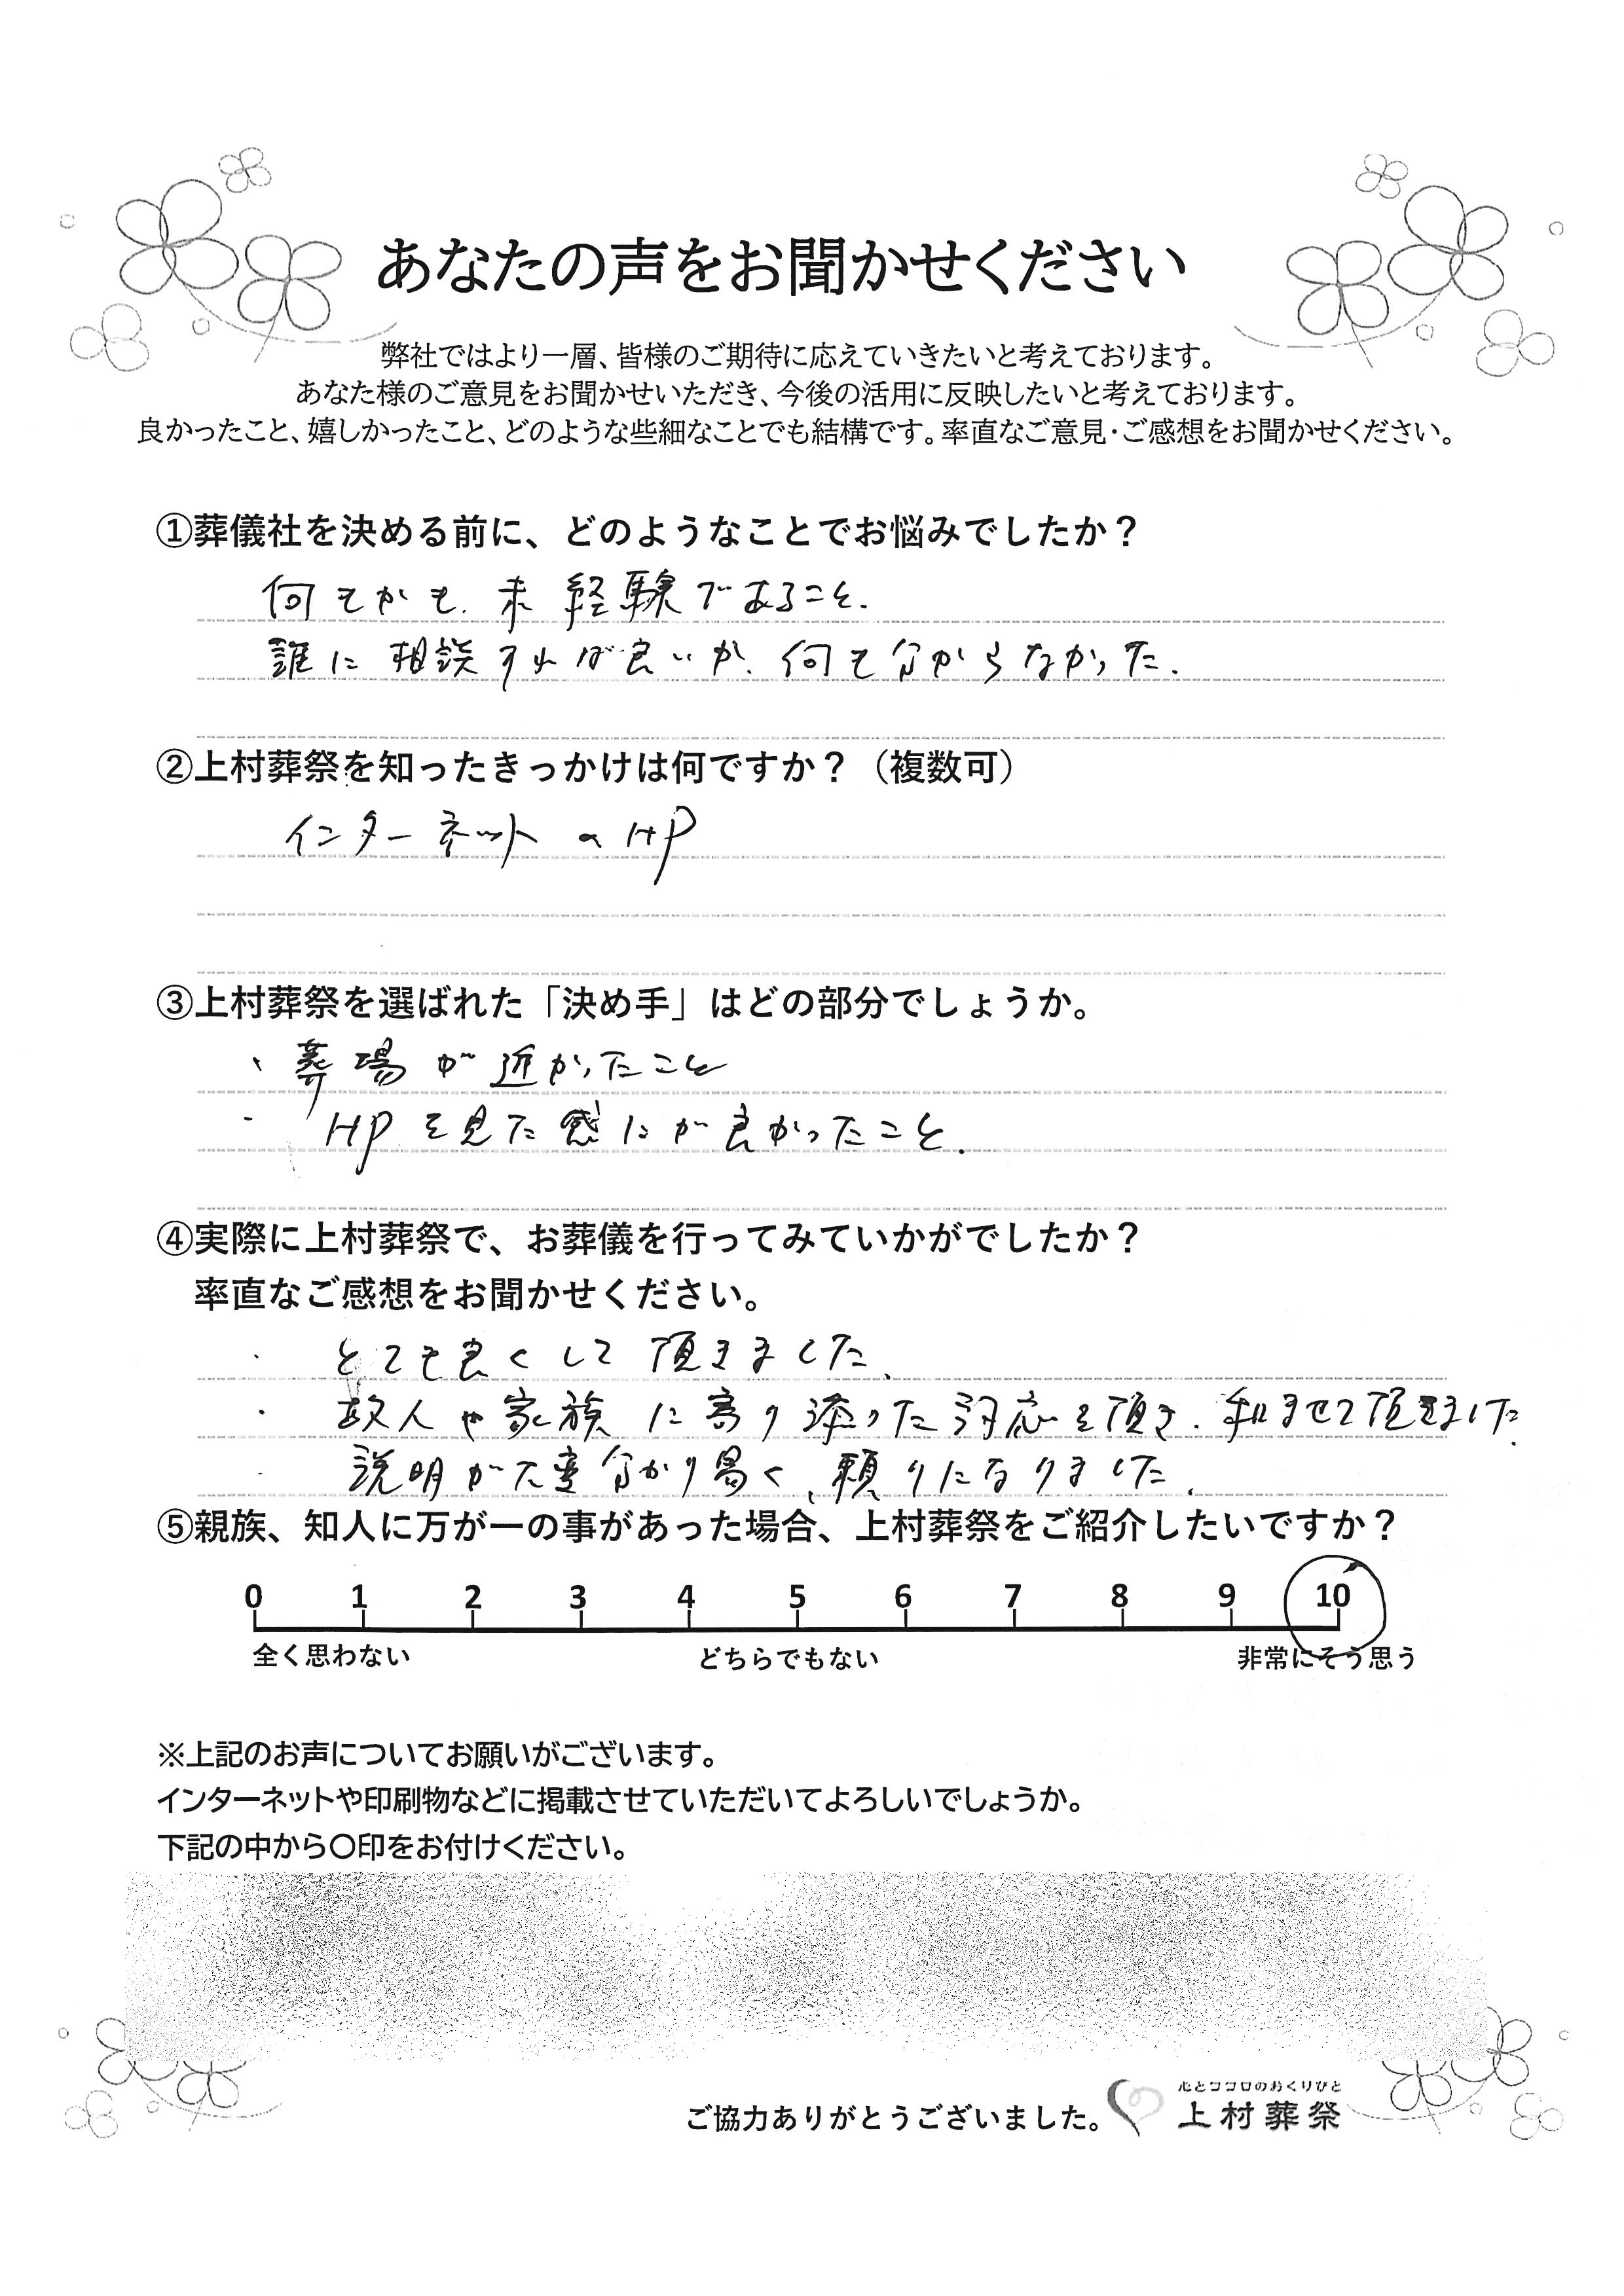 あなたの声をお聞かせください
弊社ではより一層、皆様のご期待に応えていきたいと考えております。
あなた様のご意見をお聞かせいただき、今後の活用に反映したいと考えております。
良かったこと、嬉しかったこと、どのような些細なことでも結構です。率直なご意見・ご感想をお聞かせください。
①葬儀社を決める前に、どのようなことでお悩みでしたか？
何もかも、未経験であること。
誰に相談すれば良いか、何も分からなかった。
②上村葬祭を知ったきっかけは何ですか？（複数可）
インターネットのHP
③上村葬祭を選ばれた「決め手」はどの部分でしょうか。
・葬場が近かったこと
・HPを見た感じが良かったこと。
④実際に上村葬祭で、お葬儀を行ってみていかがでしたか？
率直なご感想をお聞かせください。
・とても良くして頂きました。
・故人や家族に寄り添った対応を頂き、和ませて頂きました。
・説明が大変分かり易く、頼りになりました。
⑤親族、知人に万が一の事があった場合、上村葬祭をご紹介したいですか？
0 1 2 3 4 5 6 7 8 9 10
全く思わない どちらでもない 非常にそう思う
※上記のお声についてお願いがございます。
インターネットや印刷物などに掲載させていただいてよろしいでしょうか。
下記の中から〇印をお付けください。
心とココロのおくりびと
ご協力ありがとうございました。 上村葬祭